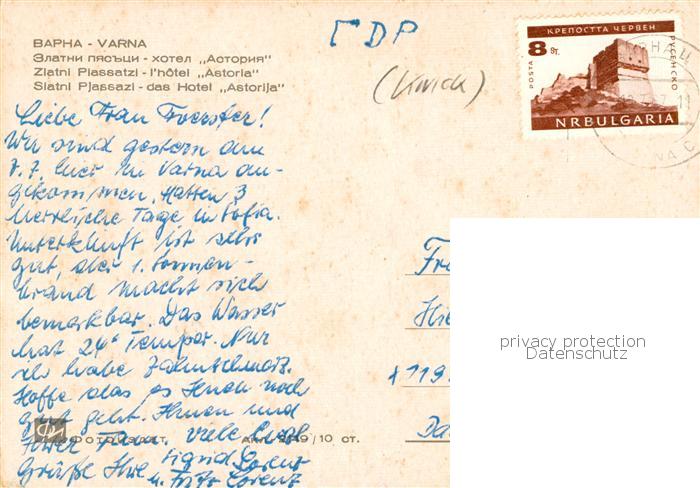 ВАРНА - VARNA
Златни пясъци - хотел „Астория"
Zlatni Piassatzi - l'hôtel „Astoria"
Slatni Pjassazi - das Hotel „Astorija"
ГDP
КРЕПОСТТА ЧЕРВЕН
РУСЕНСКО
POSTA 8 ст.
NRBULGARIA
Liebe Frau Foerster!
Wir sind gestern am
7.7. hier in Varna an-
gekommen. Hatten 3
herrliche Tage in Sofia.
Unterkunft ist sehr
gut, der 1. Sonnen-
brand macht sich
bemerkbar. Das Wasser
hat 24° Temper. Nur
ich habe Zahnschmerz.
Hoffe das es Ihnen noch
gut geht. Ihnen und
Ihrer Fam. viele liebe
Grüße Ihre Sigrid Lorenz
u. Fritz Lorenz
ФОТОИЗДАТ. /10 ст.
Fr
Hie
119
Da
privacy protection
Datenschutz